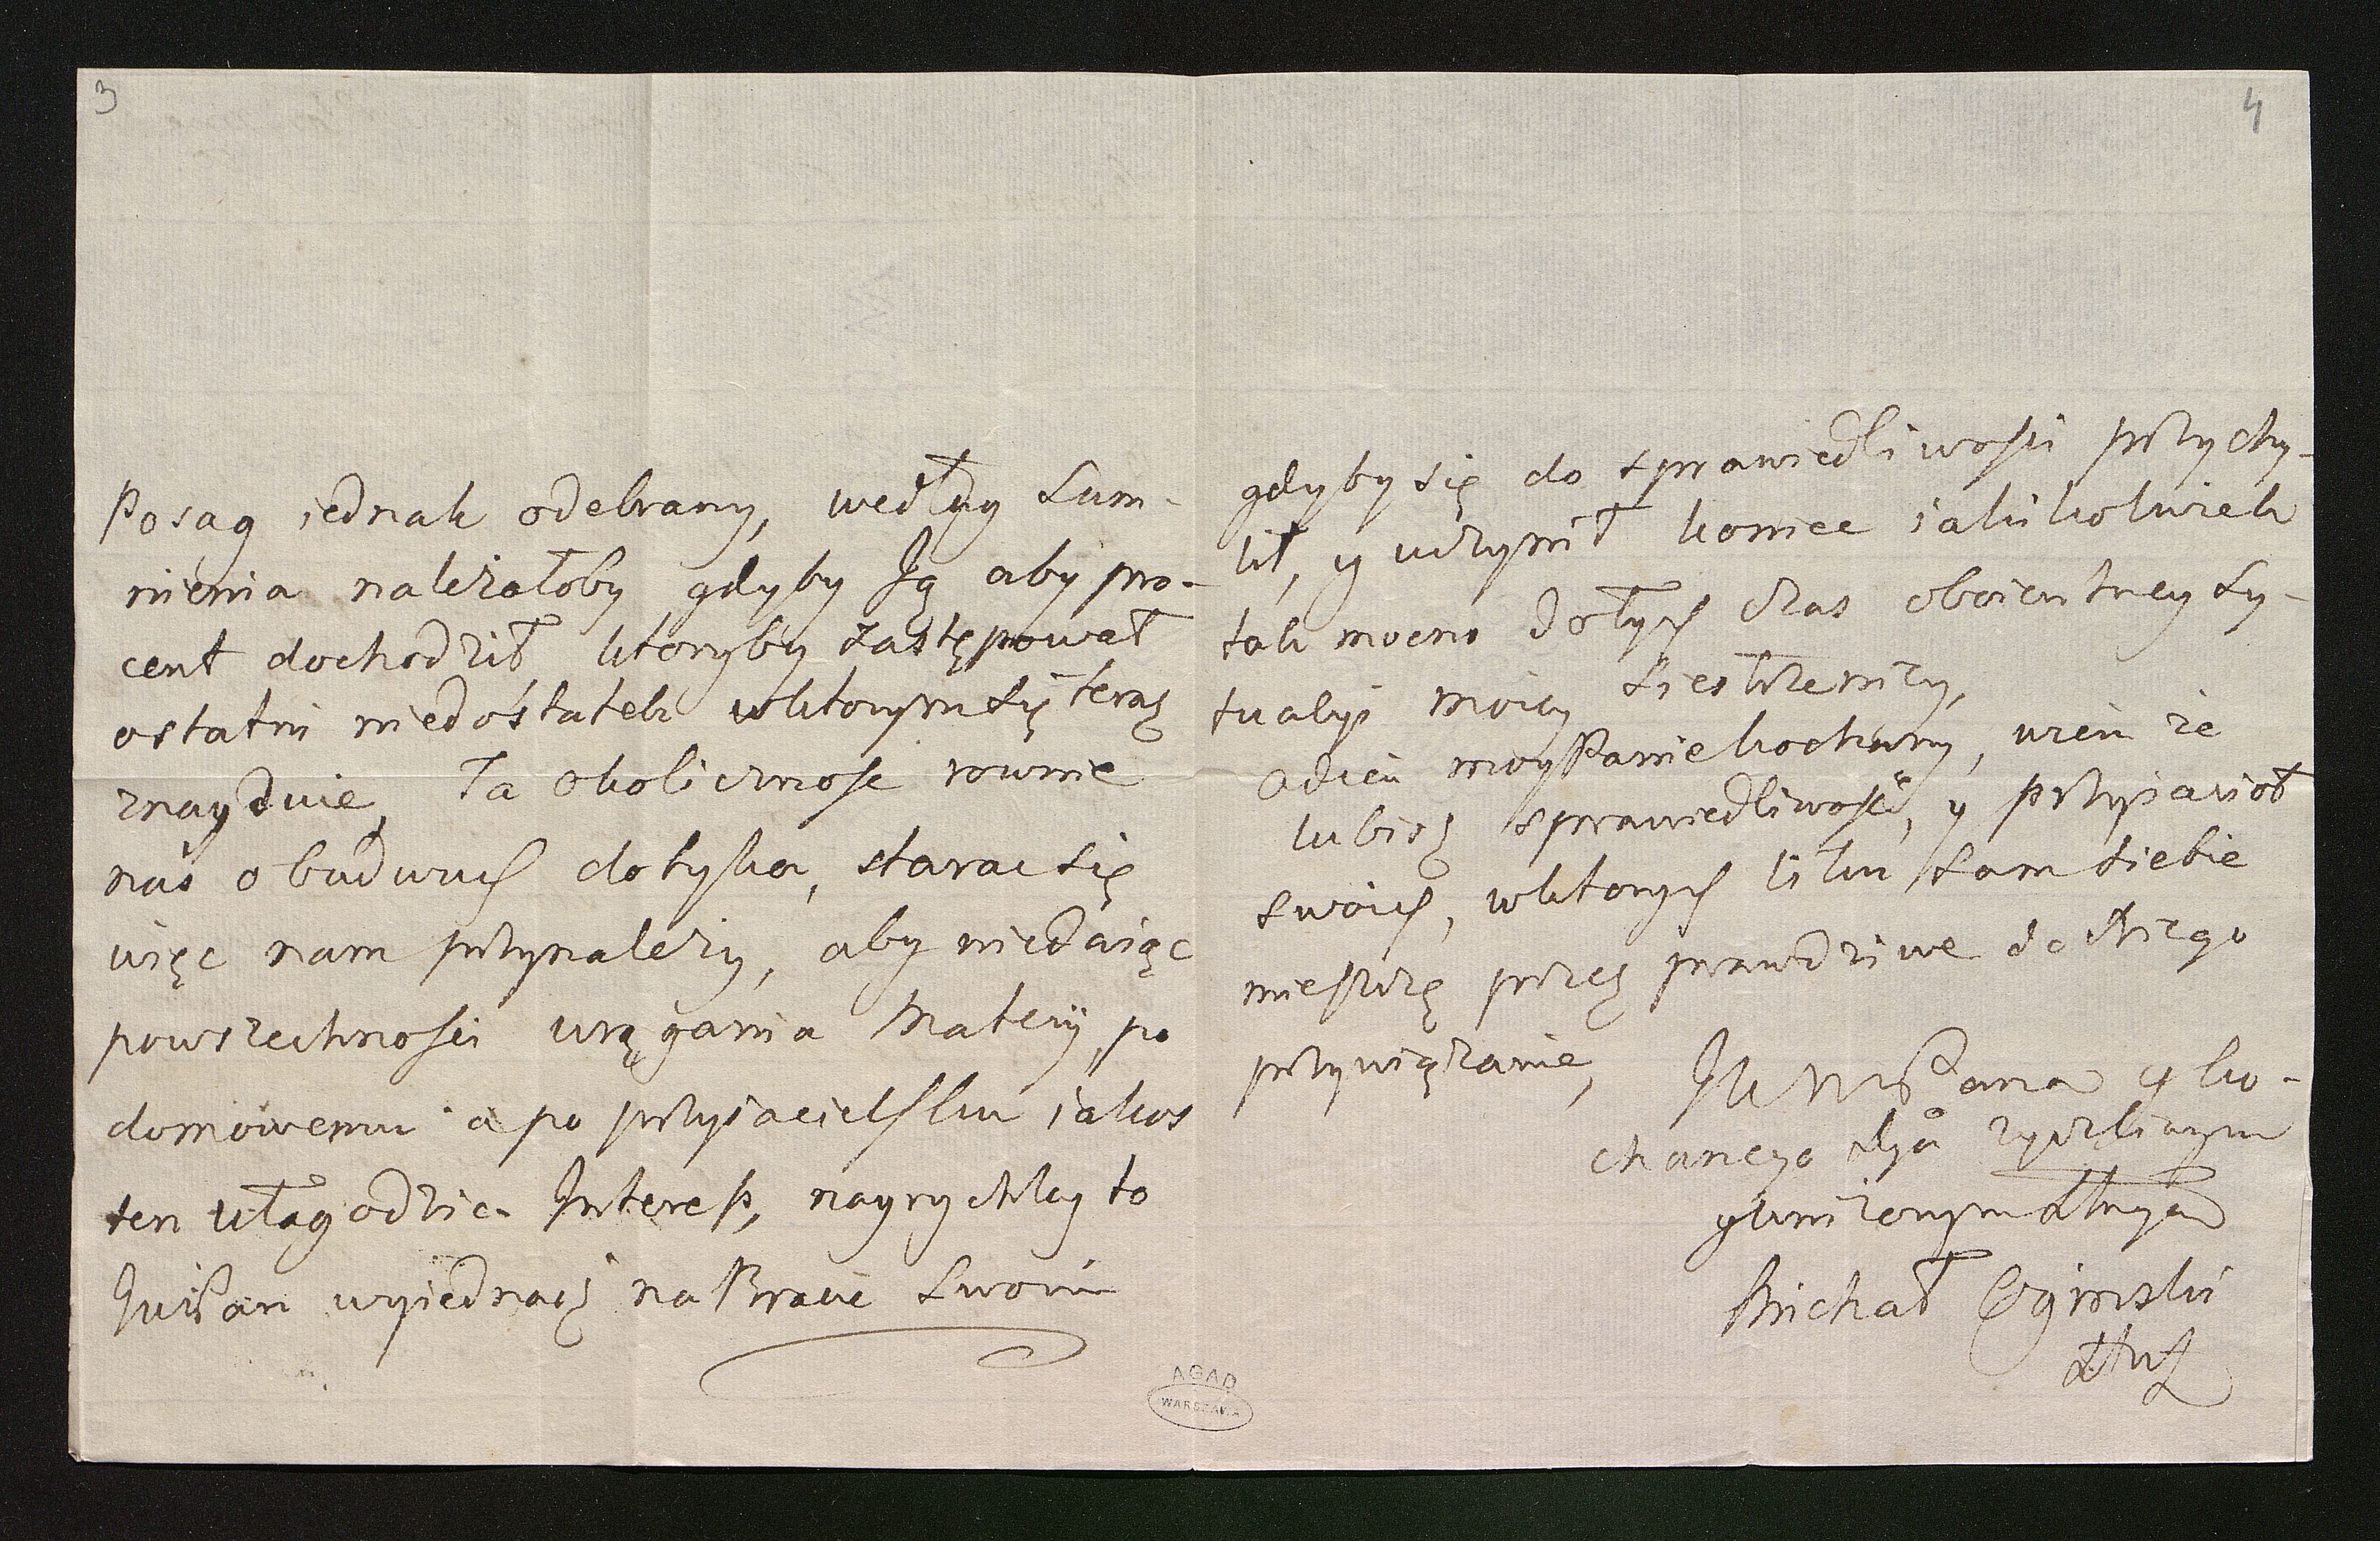 3
Posag iednak odebrany, według Sum-
nienia należałoby gdyby Ją aby pro-
cent dochodził, ktoryby zastępował
ostatni niedostatek wktorym się teraz
znayduie, Ta okolicznosc rownie
nas obudwuch dotyka, starac się
więc nam przynależy, aby niedaiąc
powszechnosci urągania Materij, po
domowemu a po przyiacielsku iakos
ten ułagodzic Interess, nayrychley to
JWPan wyiednasz na Bracie Swoim
4
gdyby się do sprawiedliwosci przychy-
lił, y uczynił koniec iakikolwiek
tak mocno dotych czas oboientney Sy-
tuacyi moiey Siestrzenicy,
Adieu moy Panie kochany, wiem że
lubisz sprawiedliwość, y przyiacioł
swoich, wktorych liku sam siebie
mieszczę przez prawdziwe do Niego
przywiązanie, JW WMPana y ko-
chanego życzliwym
y uniżonym Sługą
Michał Oginski
AGAD
WARSZAWA